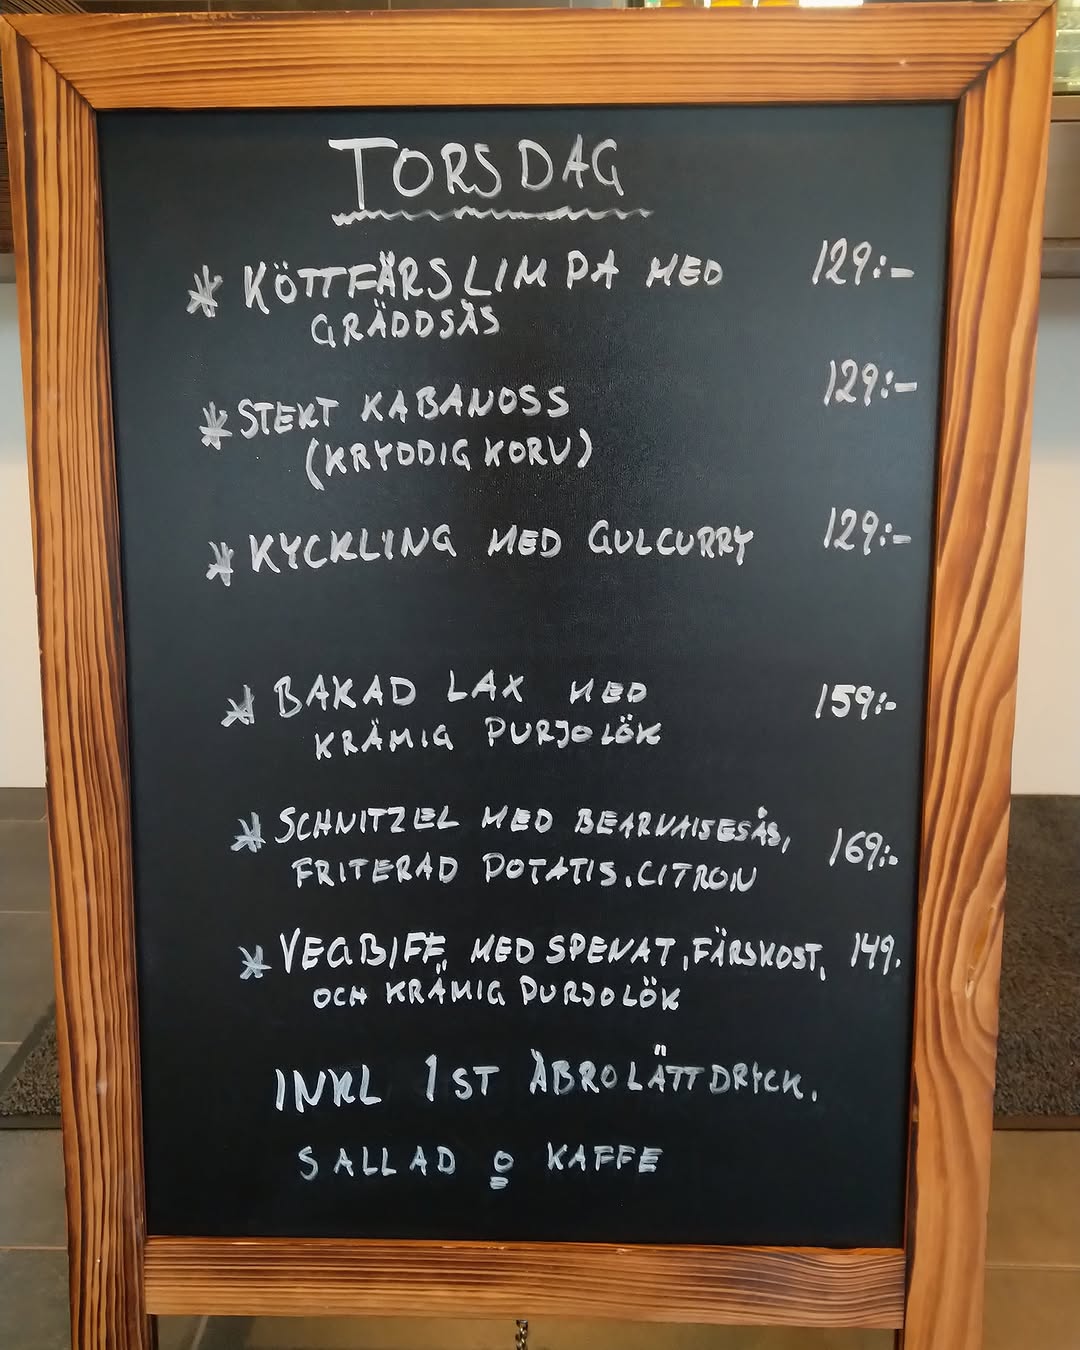 TORSDAG
* KÖTTFÄRSLIMPA MED 129:-
GRÄDDSÅS
* STEKT KABANOSS 129:-
(KRYDDIG KORV)
* KYCKLING MED GULCURRY 129:-
* BAKAD LAX MED 159:-
KRÄMIG PURJOLÖK
* SCHNITZEL MED BEARNAISESÅS, 169:-
FRITERAD POTATIS, CITRON
* VEGBIFF MED SPENAT, FÄRSKOST, 149.
OCH KRÄMIG PURJOLÖK
INKL 1 ST ÅBRO LÄTTDRYCK,
SALLAD O KAFFE